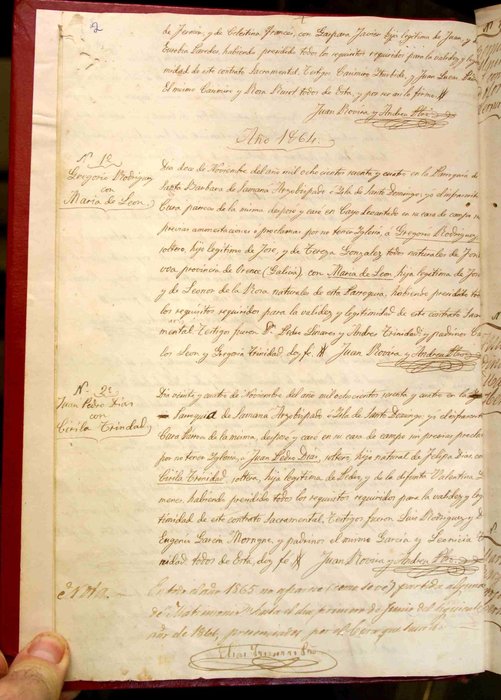 2
de Jesus, y de Celestina Francés, con Gaspara Javier hija legitima de Juan, y
Eusebia Paredes, habiendo precedido todos los requisitos requeridos para la validez y legiti
midad de este contrato Sacramental. Testigos Casimiro y Juan Lucas
El mismo Casimiro y Rosa todos de Esta, y por ser asi lo firmo.
Juan Rovira y Andreu Pbro.
Año 1864.
N. 1º
Gregorio Rodriguez
con
Maria de Leon.
Dia doce de Noviembre del año mil ochocientos sesenta y cuatro en la Parroquia de
Santa Barbara de Samana Arzobispado e Isla de Santo Domingo; yo el infrascrito
Cura parroco de la misma desposé y casé en Cayo Levantado en su casa de campo
previas amonestaciones o proclamas por no tener Iglesia, a Gregorio Rodriguez,
soltero, hijo legitimo de José, y de Tereza Gonzalez todos naturales de
provincia de Orence (Galicia), con Maria de Leon hija legitima de José
y de Leonor de la Rosa naturales de esta Parroquia, habiendo precedido todos
los requisitos requeridos para la validez y legitimidad de este contrato Sacra
mental. Testigos fueron Pedro Linares y Andres Trinidad y padrinos Car
los Leon y Gregoria Trinidad doy fe. Juan Rovira y Andreu Pbro.
N. 2º
Juan Pedro Dias
con
Cirila Trinidad
Dia veinte y cuatro de Noviembre del año mil ochocientos sesenta y cuatro en la
Parroquia de Samana Arzobispado e Isla de Santo Domingo; yo el infrascrito
Cura Parroco de la misma, desposé y casé en su casa de campo sin previas proclamas
por no tener Iglesia, a Juan Pedro Dias, soltero, hijo natural de Felipa Dias, con
Cirila Trinidad, soltera, hija legitima de Pedro, y de la difunta Valentina
menes, habiendo precedido todos los requisitos requeridos para la validez y legi
timidad de este contrato Sacramental. Testigos fueron Luis Rodriguez, y
Eugenio Garcia y padrinos el mismo Garcia y Leonicia Tri
nidad todos de Esta, doy fe. Juan Rovira y Andreu Pbro.
Nota.
Entre el año 1865 no aparece (como se ve) partida alguna
de Matrimonio hasta el dia primero de Junio del siguiente
año de 1866, presenciado por el Cura que suscribe.